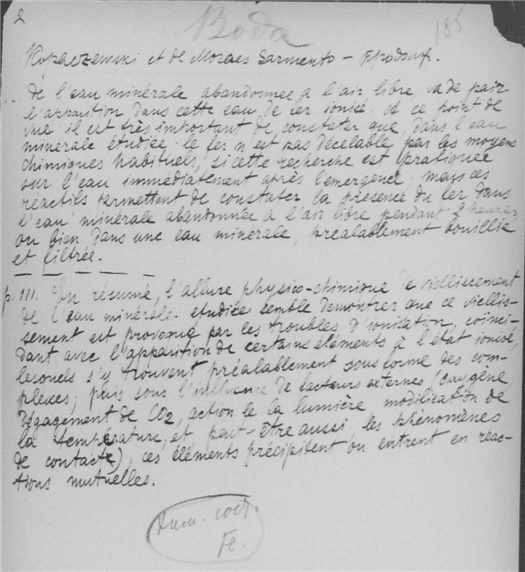 2
Boda
185
Kopaczewski et de Moraes Sarmento –
de l'eau minérale abandonnée à l'air libre va de pair
l'apparition dans cette eau de fer ionisé. A ce point de
vue il est très important de constater que, dans l'eau
minerale étudiée le fer n'est pas décelable par les moyens
chimiques habituels, si cette recherche est pratiquée
sur l'eau immédiatement après l'émergence; mais ces
réactifs permettent de constater la présence du fer dans
l'eau minérale abandonnée à l'air libre pendant heures
ou bien dans une eau minerale, préalablement bouillie
et filtrée.
p. 111. En résumé, l'allure physico-chimique de vieillissement
de l'eau minérale etudiée semble demontrer que ce vieillis-
sement est provoqué par les troubles d'ionisation coïnci-
dant avec l'apparition de certains élements à l'état ionisé,
lesquels s'y trouvent préalablement sous forme des com-
plexes; puis sous l'influence de facteurs externes (oxygène,
dégagement de CO2, action de la lumière modification de
la température, et peut-être aussi les phénomènes
de contacte), ces éléments précipitent ou entrent en reac-
tions mutuelles.
Fe.